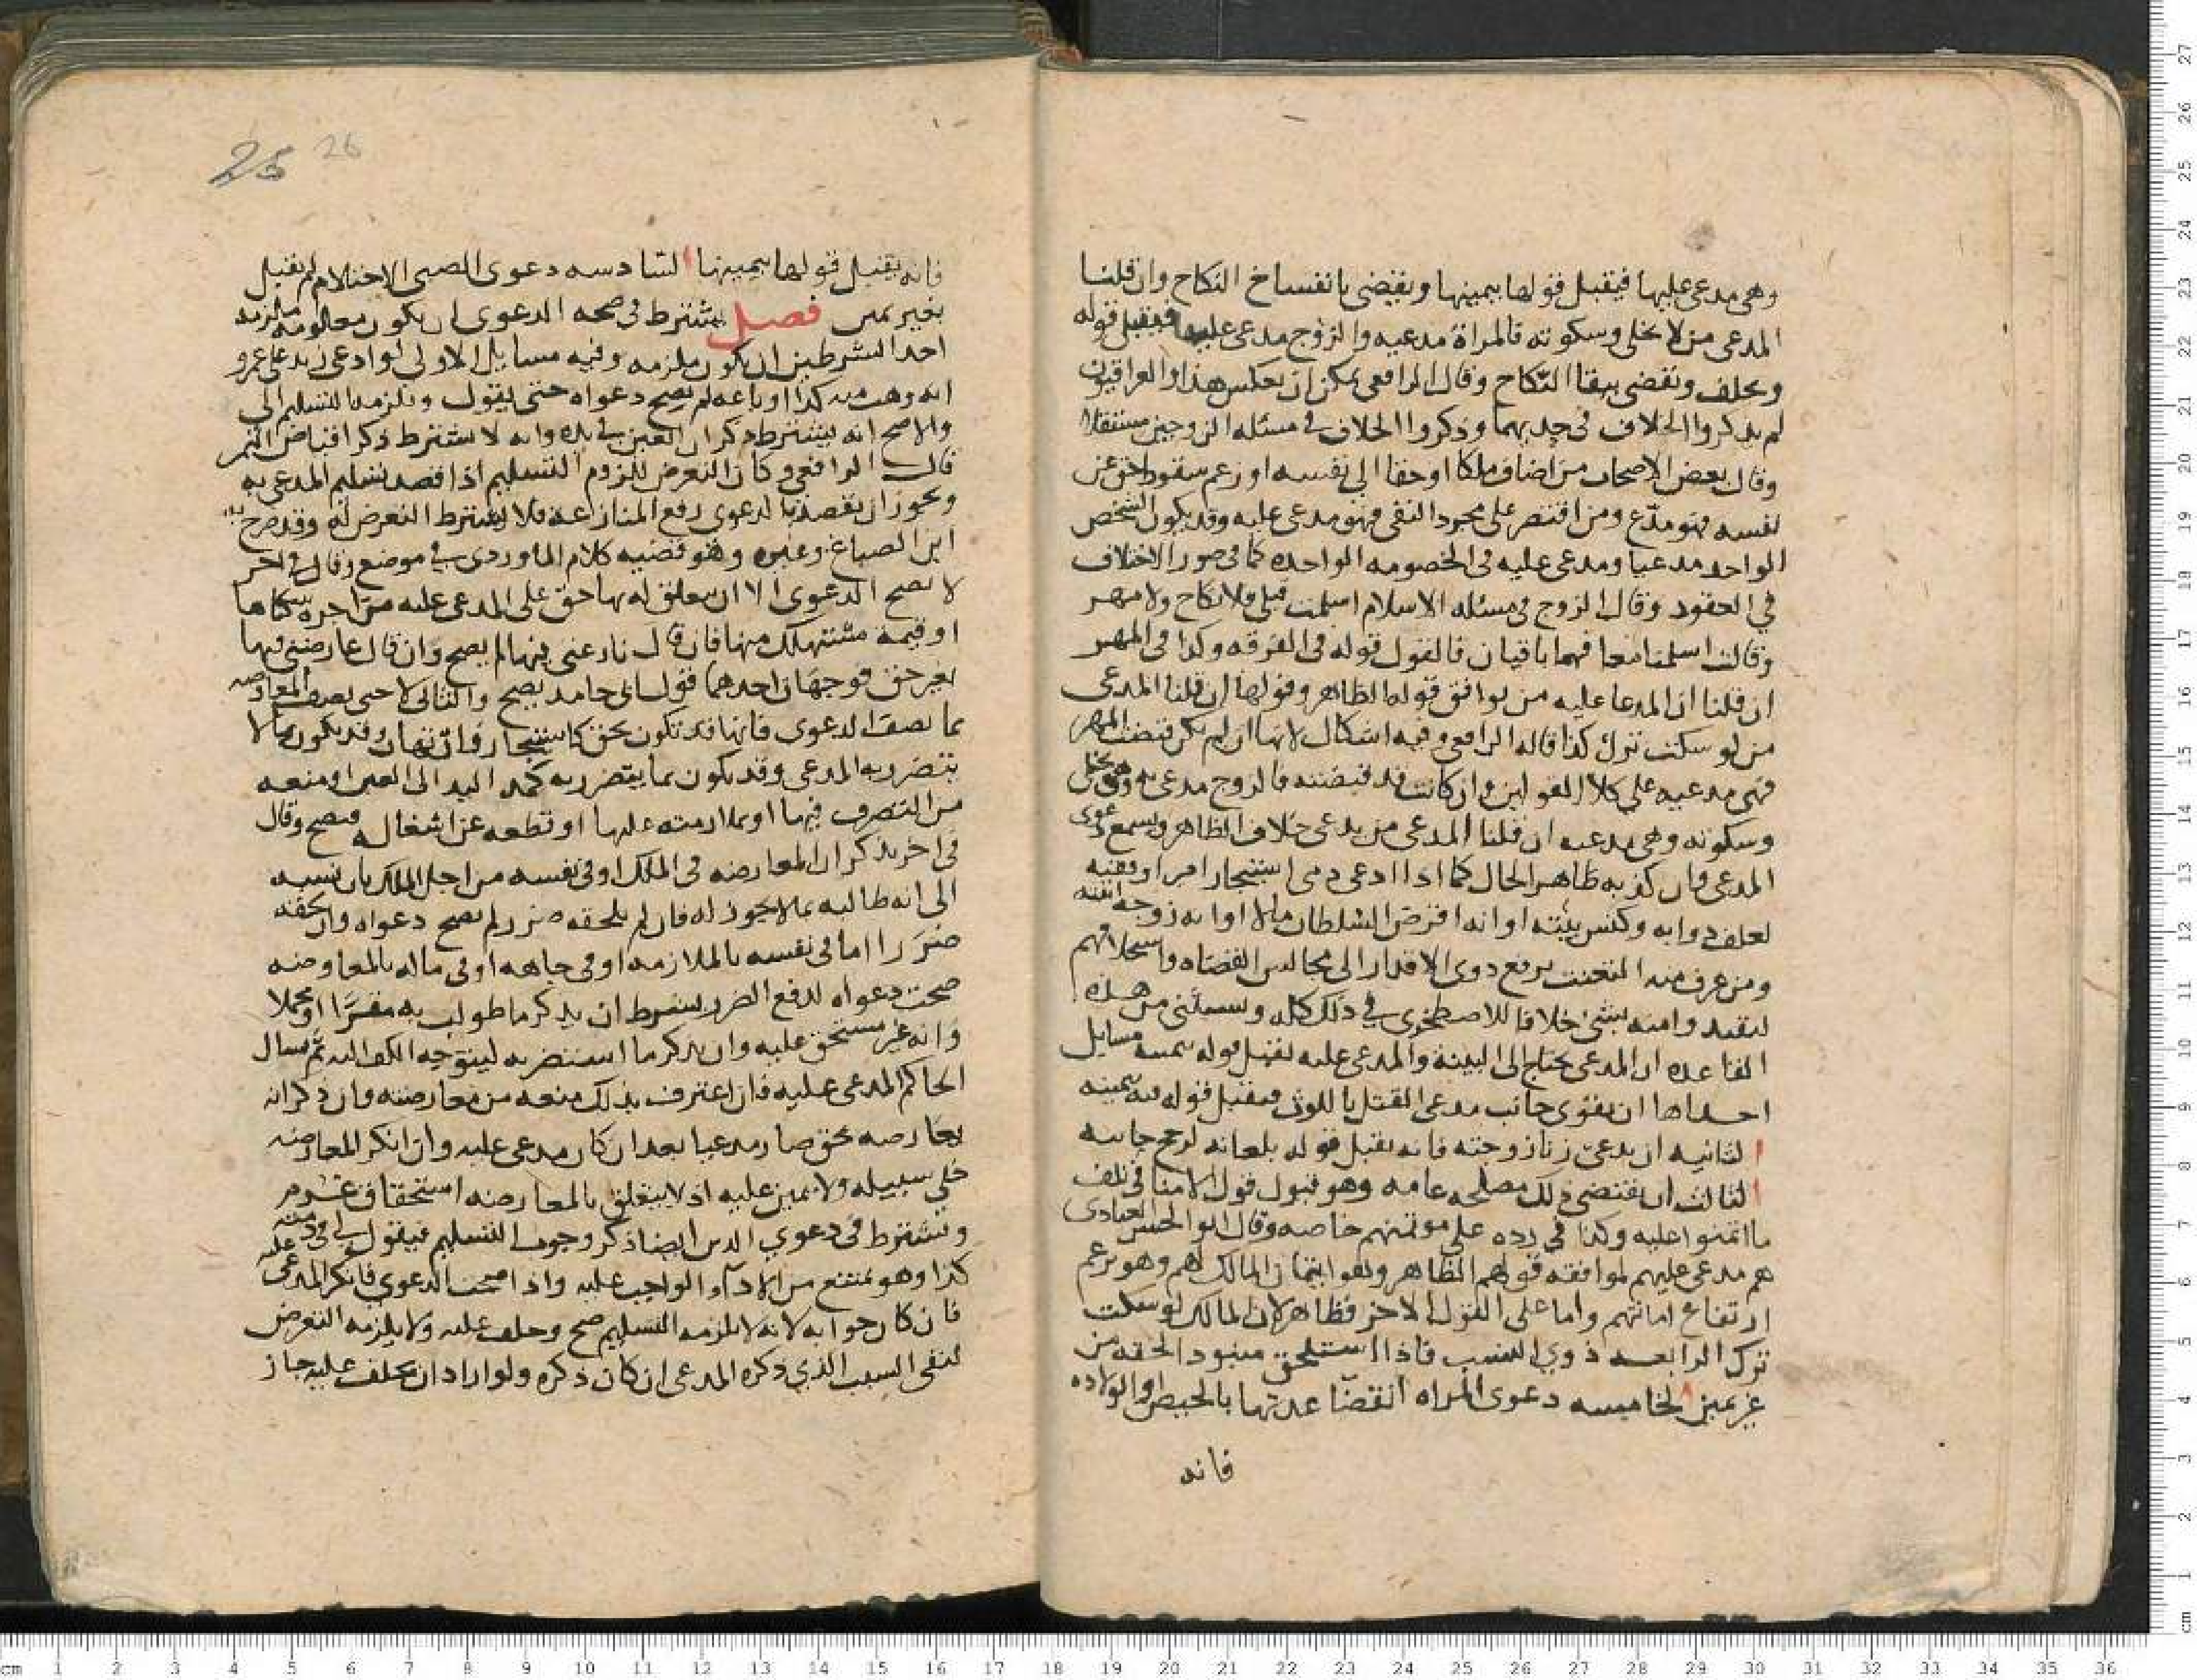 وهي مدعى عليها فيقبل قولها بيمينها ويقضى بانفساخ النكاح وان قلنا
المدعى من لا يخلى وسكوته فالمراة مدعيه والزوج مدعى عليه فيقبل قوله
ويحلف ويقضى ببقا النكاح وقال الرافعي يمكن ان يعكس هذا والعراقيون
لم يذكروا الخلاف في حديهما وذكروا الخلاف في مسئله الزوجين مستقلا
وقال بعض الاصحاب من اضاف ملكا او حقا الى نفسه او زعم سقوط حق عن
نفسه فهو مدّع ومن اقتصر على مجرد النفي فهو مدعى عليه وقد يكون الشخص
الواحد مدعيا ومدعى عليه في الخصومه الواحده كما في صور الاختلاف
في العقود وقال الزوج في مسئله الاسلام اسلمت قبلي ولا نكاح ولا مهر
وقالت اسلمنا معا فهما باقيان فالقول قوله في الفرقه وكذا في المهر
ان قلنا ان المدعا عليه من يوافق قوله الظاهر وقولها ان قلنا المدعى
من لو سكت ترك كذا قاله الرافعي وفيه اشكال لانها ان لم تكن قبضت المهر
فهي مدعيه على كلا القولين وان كانت قد قبضته فالزوج مدعى به وهو يخلى
وسكوته وهي مدعيه ان قلنا المدعى من يدعى خلاف الظاهر وتسمع دعوى
المدعى وان كذبه ظاهر الحال كما اذا ادعى دمى استيجار امير او فقيه
لعلف دوابه وكنس بيته او انه اقرض السلطان مالا او انه زوجه ابنته
ومن عرف منه التعنت برفع ذوى الاقدار الى مجالس القضاه واستحلافهم
ليفتدوا منه بشئ خلافا للاصطخرى في ذلك كله ويستثنى من هذه
القاعده ان المدعى يحتاج الى البينة والمدعى عليه يقبل قوله بيمينه مسايل
احداها ان يقوى جانب مدعى القتل باللوث فيقبل قوله فيه بيمينه
الثانيه ان يدعى زنا زوجته فانه يقبل قوله بلعانه لترجح جانبه
الثالث ان يقتضى ذلك مصلحه عامه وهو قبول قول الامنا في تلف
ما اتمنوا عليه وكذا في رده على موتمنهم خاصه وقال ابو الحسن العبادى
هم مدعى عليهم لموافقه قولهم الظاهر وهو ايتمان المالك لهم وهو يزعم
ارتفاع امانتهم واما على القول الاخر فظاهر لان المالك لو سكت
ترك الرابعه ذوي النسب فاذا استلحق منبوذ الحقه من
غير يمين الخامسه دعوى المراه انقضا عدتها بالحيض او الولاده
فانه
25 26
فانه يقبل قولها بيمينها السادسه دعوى الصبى الاحتلام لم يقبل
بغير يمين فصل يشترط في صحه الدعوى ان يكون معلومه ملزمه
احد الشرطين ان يكون ملزمه وفيه مسايل الاولى لو ادعى زيد على عمرو
انه وهب منه كذا او باعه لم يصح دعواه حتى يقول ويلزمه التسليم الى
والاصح انه يشترط ذكر ان العين في يده وانه لا يشترط ذكر اقباض الثمن
قال الرافعي وكان التعرض للزوم التسليم اذا قصد تسليم المدعى به
ويجوز ان يقصد بالدعوى رفع المنازعة فلا يشترط التعرض له وقد صرح به
ابن الصباغ وغيره وهو قضيه كلام الماوردي في موضع وقال في اخر
لا تصح الدعوى الا ان يتعلق له بها حق على المدعى عليه من اجره سكناها
او قيمة مستهلك منها فان قال نازعني فيها لم يصح وان قال عارضني فيها
بغير حق فوجهان احدهما قول ابى حامد يصح والثاني لا حتى يصف المعارضه
بما يصف الدعوى فانها قد تكون بحق كاستيجار وارتهان وقد يكون بما لا
يتضرر به المدعى وقد يكون بما يتضرر به كمد اليد الى العين او منعه
من التصرف فيها او بملازمته عليها او قطعه عن اشغاله فيصح وقال
في اخر يذكر ان المعارضه في الملك او في نفسه من اجل الملك بان نسبه
الى انه طالبه بما لا يجوز له فان لم يلحقه ضرر لم يصح دعواه وان لحقه
ضررا اما في نفسه بالملازمه او في جاهه او في ماله بالمعاوضه
صحت دعواه لدفع الضرر بشرط ان يذكر ما طولب به مفسَّرا او مجملا
وانه غير مستحق عليه وان يذكر ما استضر به ليتوجه الكف اليه ثم يسال
الحاكم المدعى عليه فان اعترف بذلك منعه من معارضته وان ذكر انه
يعارضه بحق صار مدعيا بعد ان كان مدعى عليه وان انكر المعارضه
خلي سبيله ولا يمين عليه اذ لا يتعلق بالمعارضه استحقاق غرم
ويشترط في دعوي الدين ايضا ذكر وجوب التسليم فيقول لي في ذمته
كذا وهو ممتنع من الادآء الواجب عليه واذا صحت الدعوي فانكر المدعى عليه
فان كان جوابه لانه لا يلزمه التسليم صح وحلف عليه ولا يلزمه التعرض
لنفي السبب الذي ذكره المدعى ان كان ذكره ولو اراد ان يحلف عليه جاز